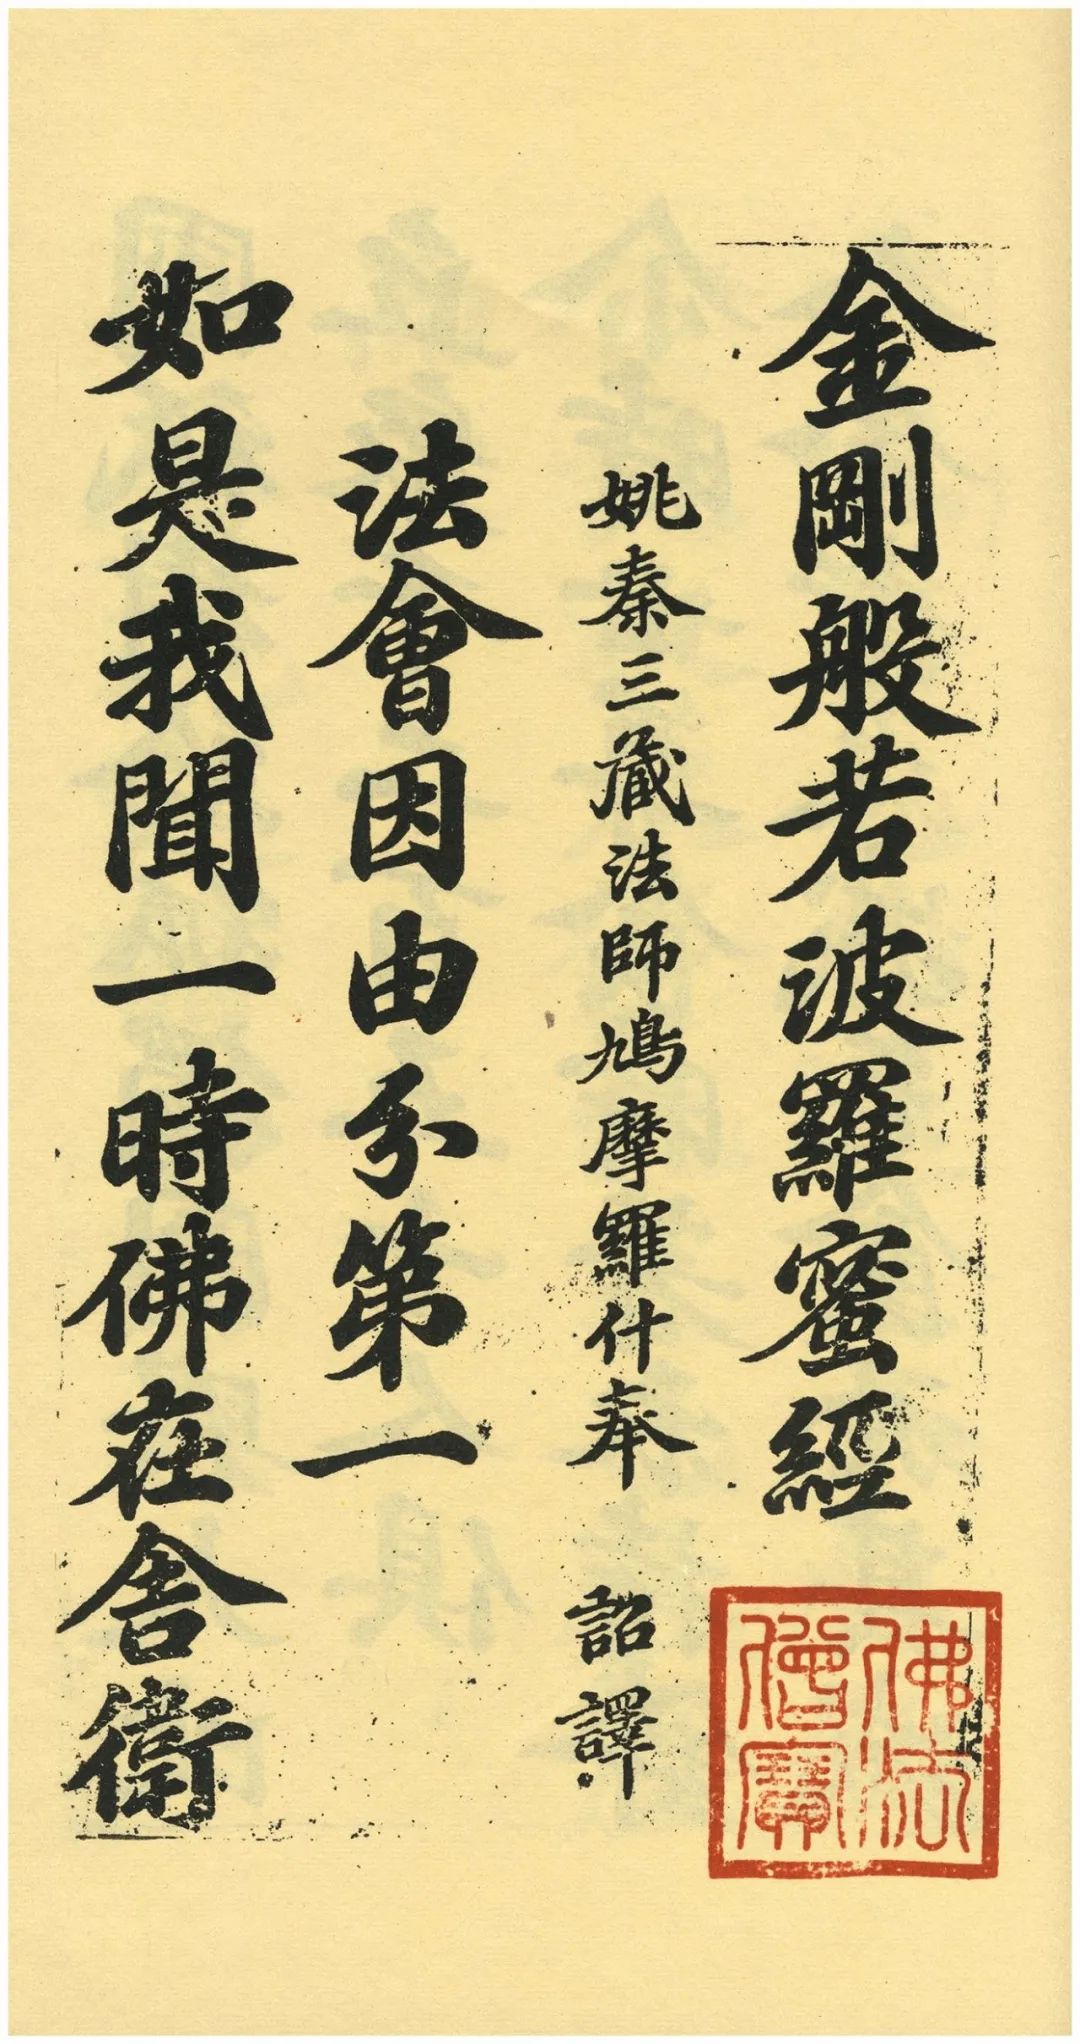 金剛般若波羅蜜經
姚秦三藏法師鳩摩羅什奉 詔譯
法會因由分第一
如是我聞一時佛在舍衛
佛法僧寶